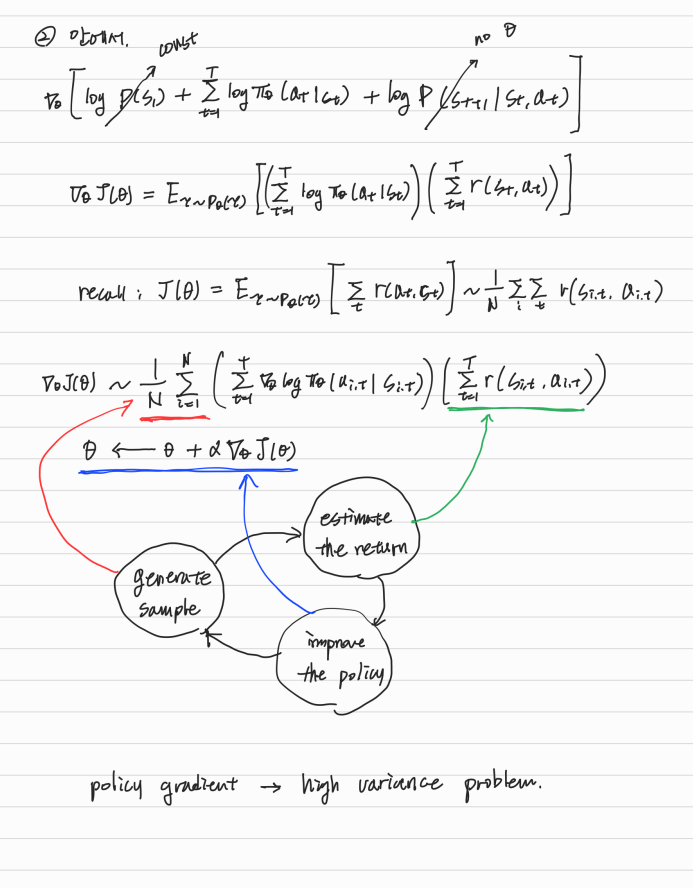 ② 앞에서.
const
no θ
∇θ [ log p(s₁) + Σ_{t=1}^{T} log πθ (at|st) + log P (st+1 | st, at) ]
∇θ J(θ) = E_{τ~Pθ(τ)} [ ( Σ_{t=1}^{T} log πθ (at|st) ) ( Σ_{t=1}^{T} r(st, at) ) ]
recall ; J(θ) = E_{τ~Pθ(τ)} [ Σ_t r(at, st) ] ~ 1/N Σ_i Σ_t r(si,t, ai,t)
∇θ J(θ) ~ 1/N Σ_{i=1}^{N} ( Σ_{t=1}^{T} ∇θ log πθ (ai,t | si,t) ) ( Σ_{t=1}^{T} r(si,t, ai,t) )
θ ← θ + α ∇θ J(θ)
estimate
the return
generate
sample
improve
the policy
policy gradient → high variance problem.